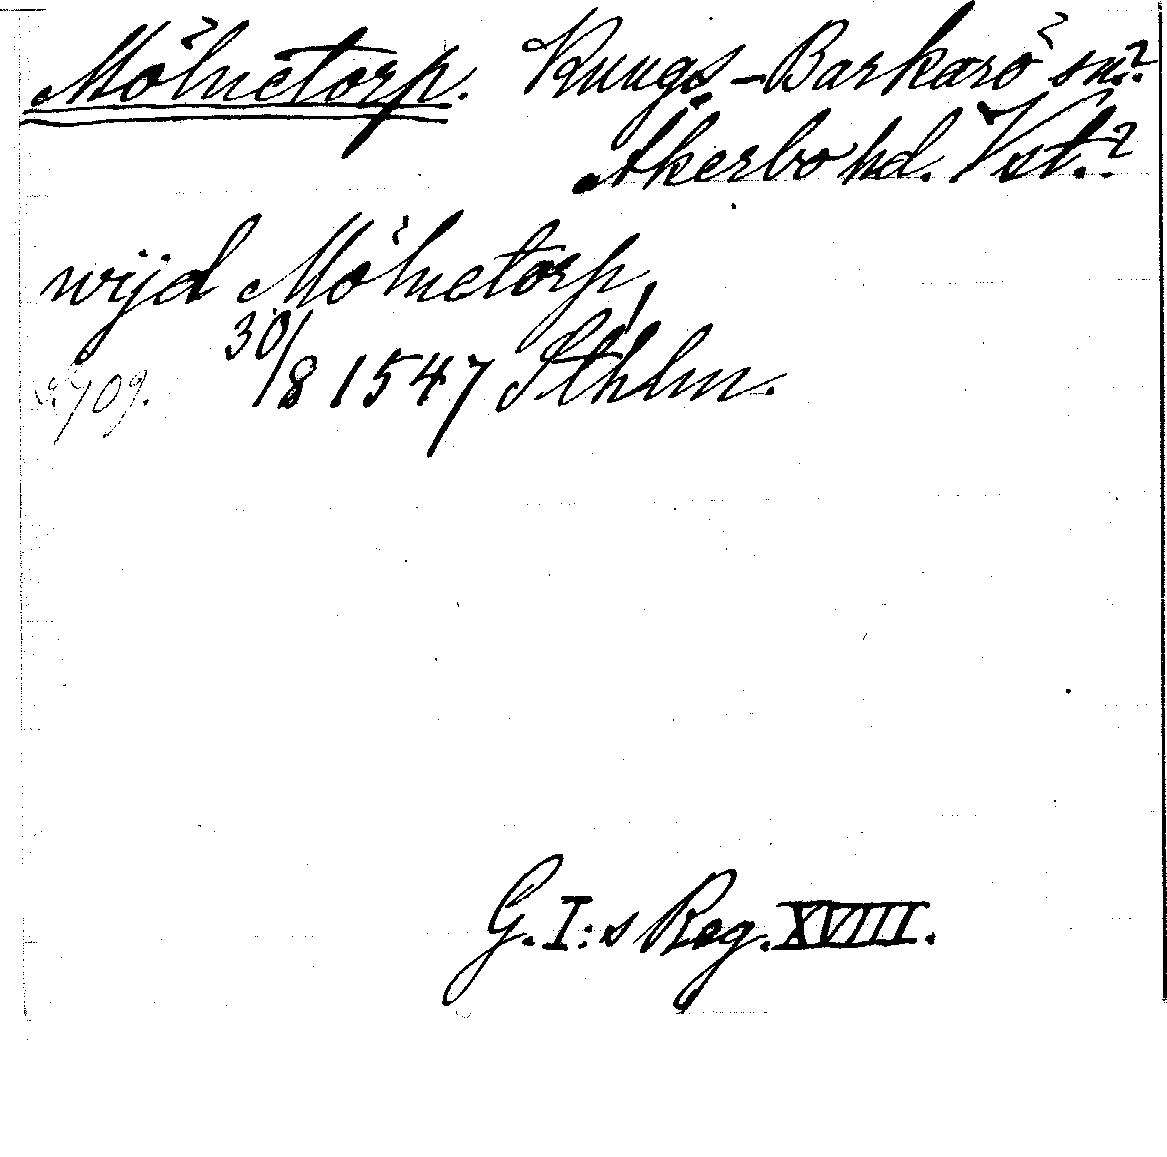 Mölnetorp. Kungs-Barkarö sn.?
Åkerbo hd. Vst.?
wijd Mölnetorp,
30/8 1547 Sthlm.
s. 709.
G. I:s Reg. XVIII.